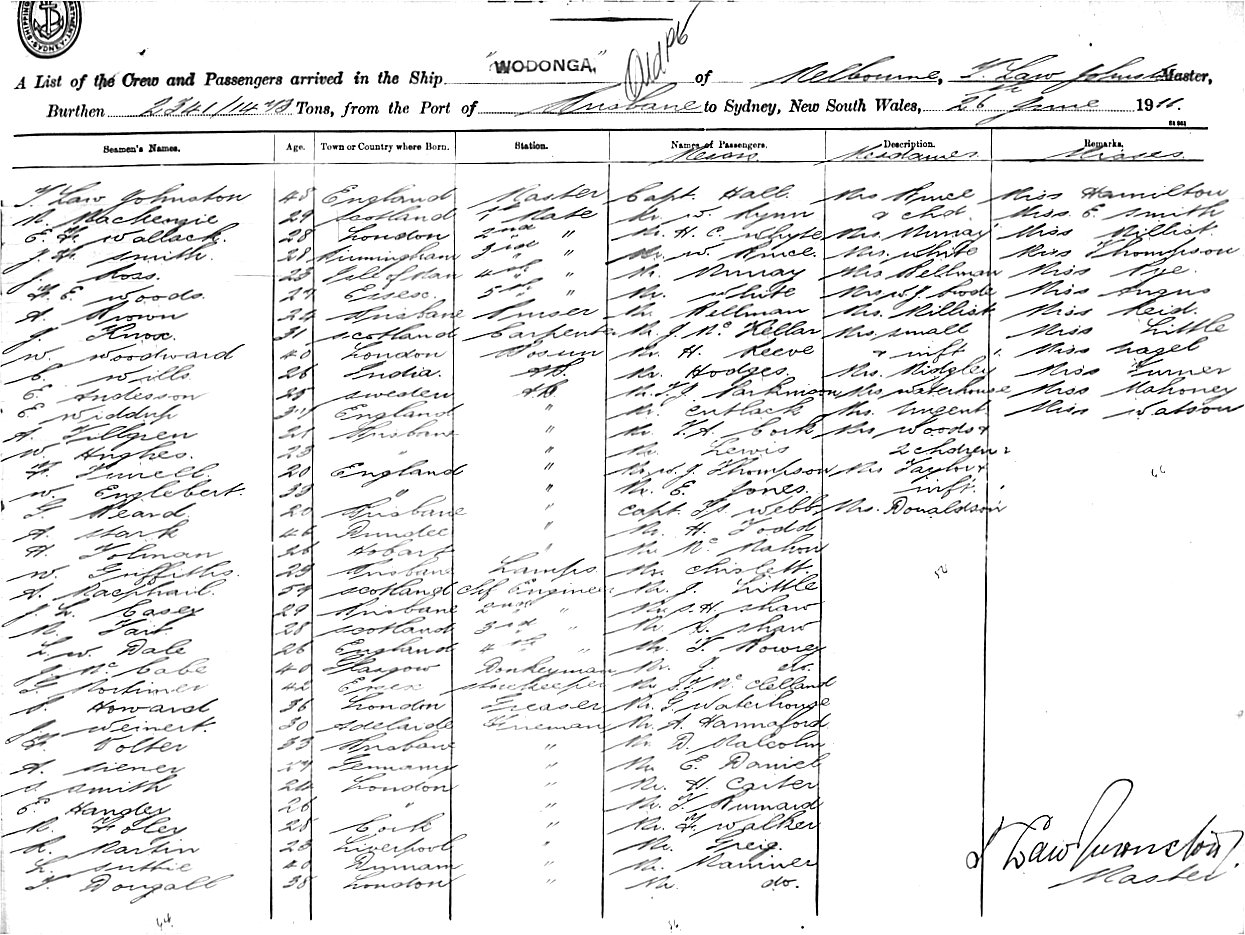 "WODONGA," Old PG
A List of the Crew and Passengers arrived in the Ship of Melbourne, T. Law Johnston Master,
Burthen 2341/1473 Tons, from the Port of Brisbane to Sydney, New South Wales, 26 June 1911.
Seamen's Names. Age. Town or Country where Born. Station. Names of Passengers. Description. Remarks.
Messrs Mesdames Misses
T. Law Johnston 48 England Master Capt. Hall Mrs Bruce Miss Hamilton
R. Mackenzie 29 Scotland 1st Mate Mr. W. Flynn & chd. Miss E. Smith
E. H. Wallack. 28 London 2nd " Mr. H. C. Whyte Mrs. Murray Miss Millist
J. H. Smith. 28 Birmingham 3rd " Mr. W. Bruce. Mrs. White Miss Thompson
J. Ross. 23 Isle of Man 4th " Mr. Murray Mrs Bellman Miss Pye.
F. E. Woods. 27 Essex. 5th " Mr. White Mrs W. J. Miss Angus
A. Brown 24 Brisbane Purser Mr. Bellman Mrs. Millist Miss Reid.
J. Knox. 31 Scotland Carpenter Mr. J. McKellar Mrs. Small Miss Little
W. Woodward 40 London Bosun Mr. H. Reeve & inft. Miss Nagel
C. Wills. 26 India. AB. Mr. Hodges. Mrs. Ridgley Miss Turner
E. Andesson 25 Sweden AB Mr. F. J. Parkinson Mrs Waterhouse Miss Mahoney
E. Widdup 37 England " Mr. Cutlack Mrs. Nugent Miss Watson
A. Tillgren 21 Brisbane " Mr. T. A. Cork Mrs Woods &
W. Hughes. 23 " " Mr. Lewis 2 chdren
20 England " Mr. W. J. Thompson Mrs Taylor &
W. Englebert. 39 " " Mr. E. Jones. inft.
G. Beard 20 Brisbane " Capt. Webb, Mrs. Donaldson
A. Stark 46 Dundee " Mr. H. Todd
A. Tolman 26 Hobart " Mr. McMahon
W. Griffiths. 29 Brisbane Lamps. Mr. Chislett.
A. Macphail. 54 Scotland Chf Engineer Mr. J. Little
J. L. Casey 29 Brisbane 2nd " Mr. S. H. Shaw
R. Tait. 28 Scotland 3rd " Mr. Shaw
L. W. Dale 26 England 4th " Mr. T. Mowrey
J. McCabe 40 Glasgow Donkeyman Mr. J. do.
G. Mortimer 42 Essex Storekeeper Mr. McClelland
Howard 36 London Greaser Mr. G. Waterhouse
Weinert. 30 Adelaide Fireman Mr. A. Hannaford
Wolter 33 Brisbane " Mr. D. Malcolm
A. Siener 27 Germany " Mr. E. Daniel
Smith 24 London " Mr. H. Carter
E. Hangley 26 " " Mr. T.
M. Foley 28 Cork " Mr. F. Walker
R. Martin 28 Liverpool " Mr. Greig.
L. Suttie 40 " Mr. Mariner
T. Dougall 38 London " Mr. do.
T Law Johnston
Master
44 36